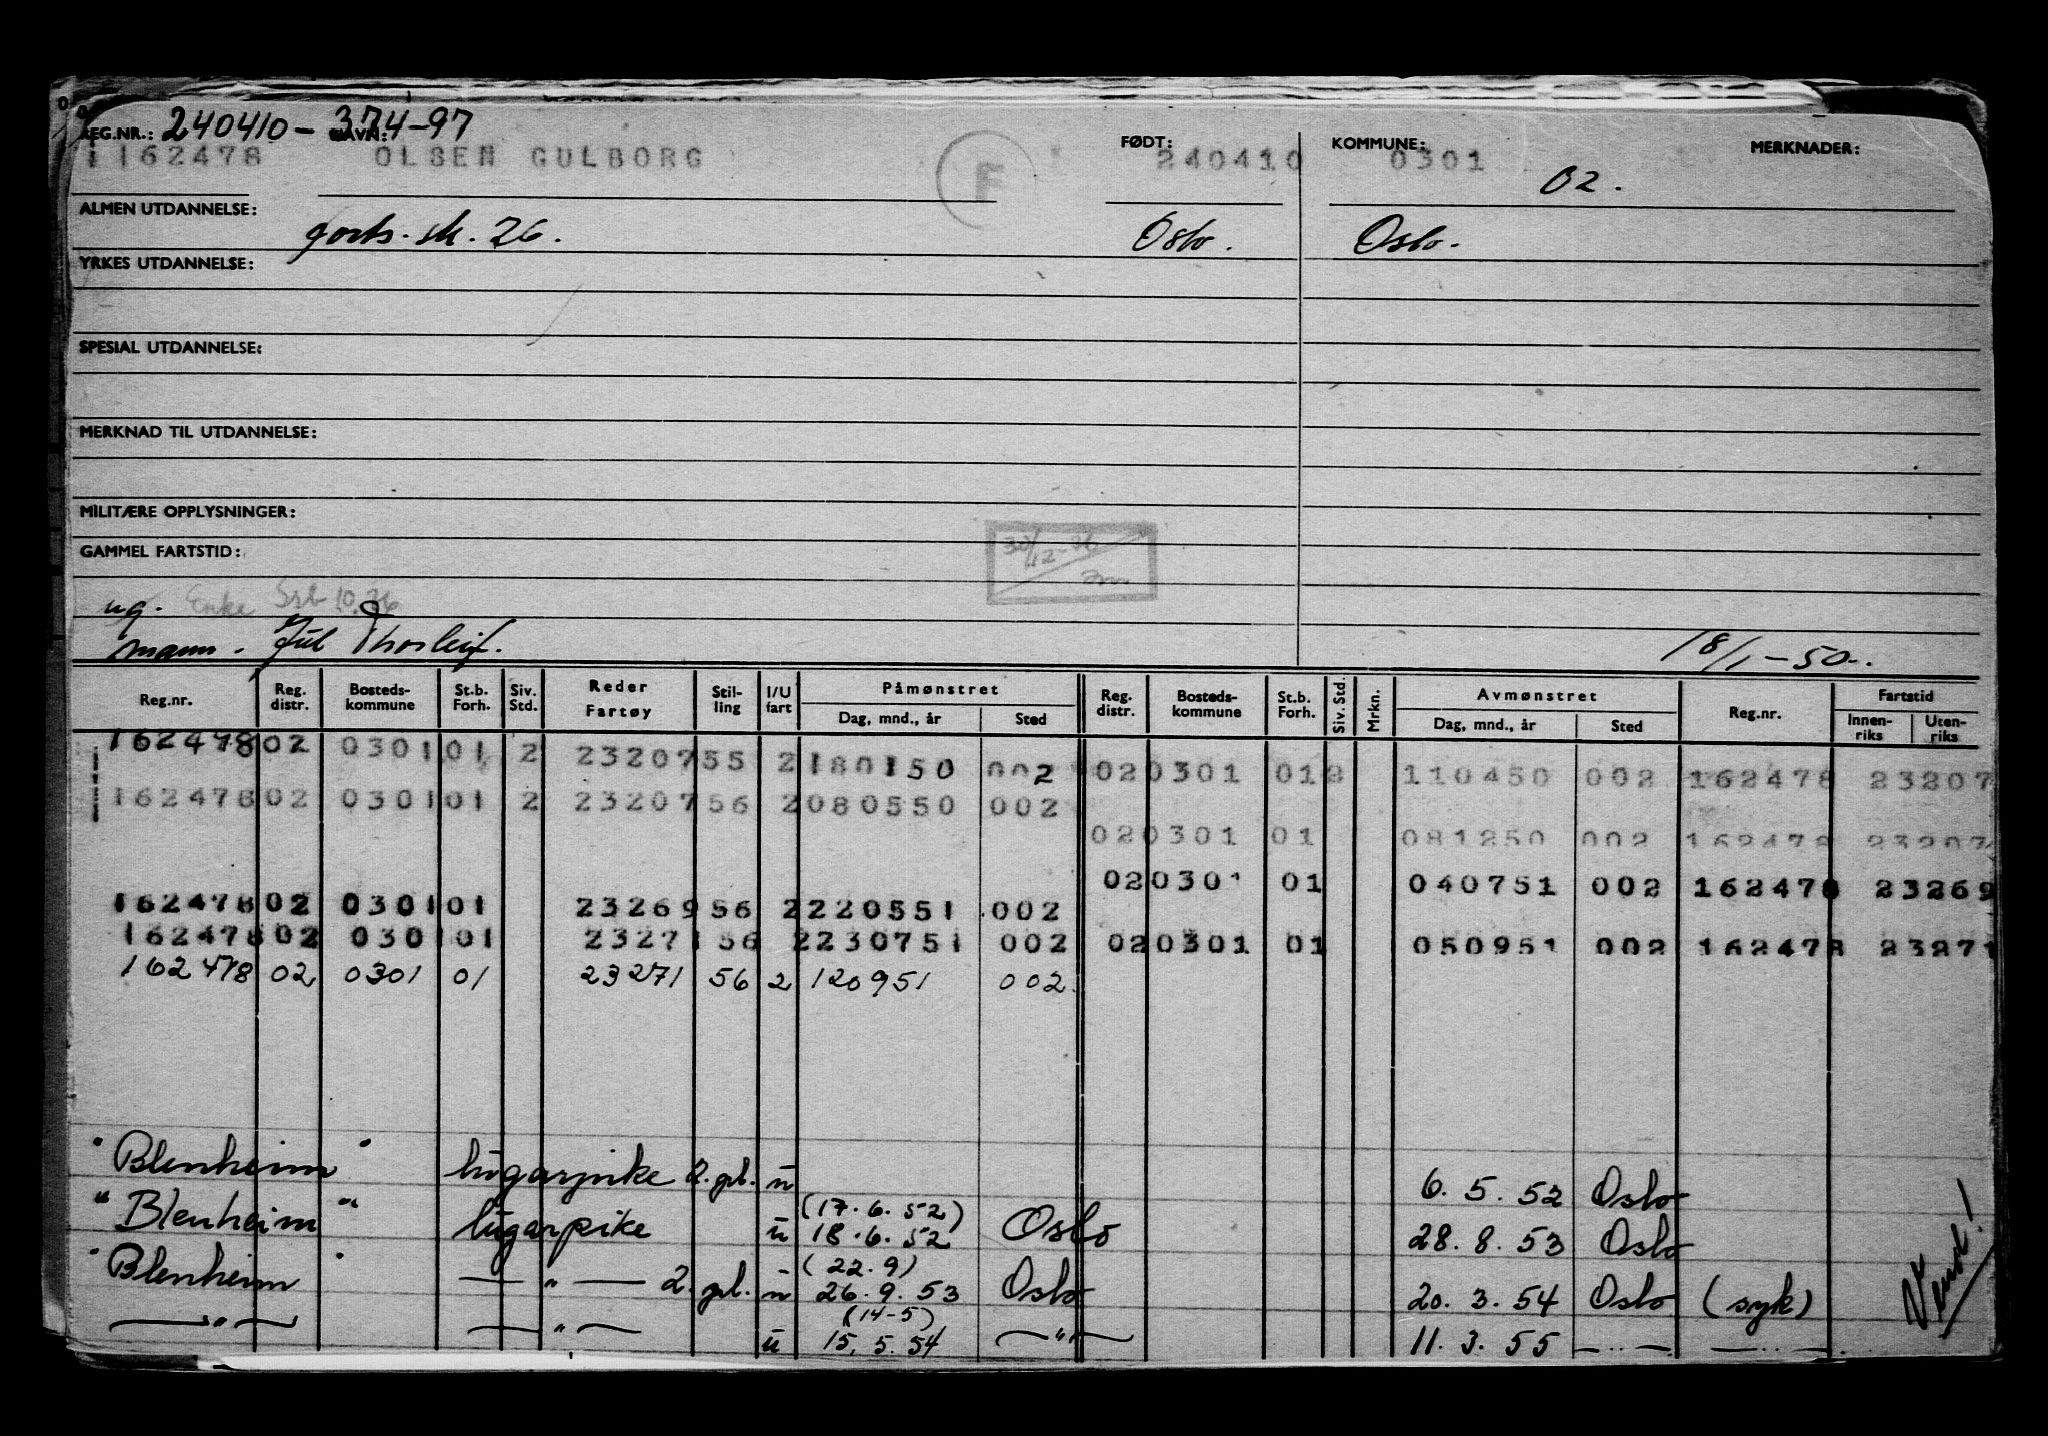 REG.NR.: 240410-374-97 NAVN: FØDT: KOMMUNE: MERKNADER:
162478 OLSEN GULBORG F 240410 0301
02.
ALMEN UTDANNELSE: forts. sk. 26. Oslo. Oslo.
YRKES UTDANNELSE:
SPESIAL UTDANNELSE:
MERKNAD TIL UTDANNELSE:
MILITÆRE OPPLYSNINGER:
GAMMEL FARTSTID:
ug. Enke 10.76
mann. Jul Thorleif. 18/1-50.
Reg.nr. Reg. distr. Bostedskommune St.b. Forh. Siv. Std. Reder Fartøy Stilling I/U fart Påmønstret Dag, mnd., år Sted Reg. distr. Bostedskommune St.b. Forh. Siv. Std. Mrkn. Avmønstret Dag, mnd., år Sted Reg.nr. Fartstid Innenriks Utenriks
162478 02 0301 01 2 23207 55 2 180150 002 02 0301 01 2 110450 002 162478 23207
162478 02 0301 01 2 23207 56 2 080550 002
02 0301 01 081250 002 162478 23207
02 0301 01 040751 002 162478 23269
162478 02 0301 01 23269 56 2 220551 002
162478 02 0301 01 23271 56 2 230751 002 02 0301 01 050951 002 162478 23271
162478 02 0301 01 23271 56 2 120951 002
"Blenheim" lugarpike 2. gl. u 6. 5. 52 Oslo
(17. 6. 52)
"Blenheim" lugarpike u 18. 6. 52 Oslo 28. 8. 53 Oslo
(22. 9)
"Blenheim" — " — 2. gl. u 26. 9. 53 Oslo 20. 3. 54 Oslo (syk)
(14-5)
— " — — " — u 15. 5. 54 — " — 11. 3. 55 — " — — " —
Vend!